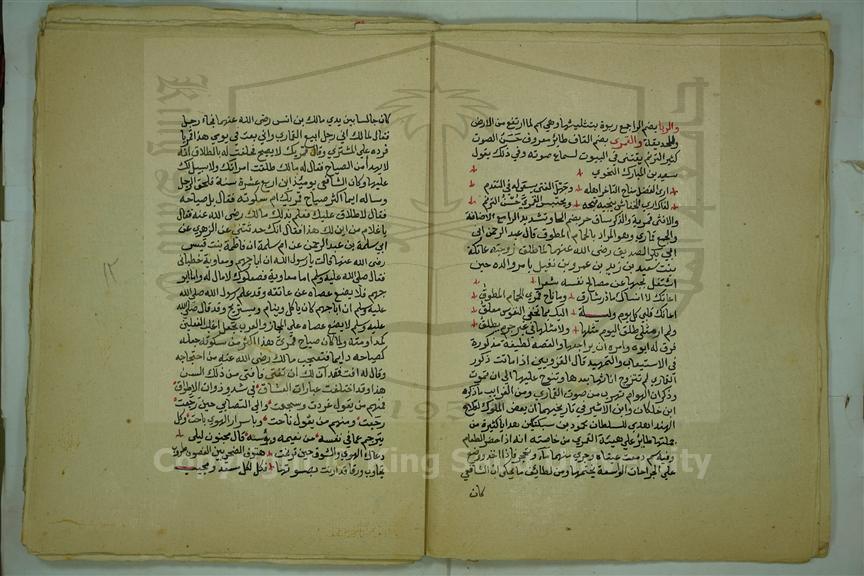 والربا بضم الراجمع ربوة بتثليثها وهي اسم لما ارتفع من الارض
والقمري بضم القاف طائر معروف حسن الصوت
كثير الترنم يقتنى في البيوت لسماع صوته وفي ذلك يقول
سعيد بن المبارك النحوي
ارى الفضل مناح التاخر اهله وجهل الفتى يسعى له في التقدم
كذاك ارى الخفاش ينجيه قبحه ويحتبس القمري حسن الترنم
والانثى قمرية والذكر ساق حر
والجمع قماري وهو المراد بالحمام المطوق قال عبد الرحمن ابن
ابي بكر الصديق رضي الله عنهما لما طلق زوجته عاتكة
بنت سعيد بن زيد بن عمرو بن نفيل بامر والده حين
اشتغل بحبها عن مصالح نفسه شعرا
اعاتك لا انساك ما ذر شارق وما ناح قمري الحمام المطوق
اعاتك قلبي كل يوم وليلة اليك بما تخفي النفوس معلق
ولم ار مثلي طلق اليوم مثلها ولا مثلها في غير جرم يطلق
فرق له ابوه وامره ان يراجعها والقصة لطيفة مذكورة
في الاستيعاب والتمهيد قال القزويني اذا ماتت ذكور
القماري لم تتزوج اناثها بعدها وتنوح عليها الى ان تموت
وذكر ان الهوام تهرب من صوت القماري ومن الغرايب ما ذكره
ابن خلكان وابن الاثير في تاريخيهما ان بعض الملوك
الهند اهدى للسلطان محمود بن سبكتكين هدايا كثيرة من
جملتها طائر على هيئة القمري من خاصيته انه اذا حضر الطعام
وفيه سم دمعت عيناه وجرى منهما ماء وتحجر فاذا
على الجراحات الوسعة يختمها ومن لطايف ما يحكى ان الشافعي
كان
كان جالسا بين يدي مالك بن انس رضي الله عنهما فجاء رجل
فقال لمالك اني رجل ابيع القماري واني بعت في يومي هذا قمريا
فرده علي المشتري وقال قمريك لا يصيح فحلفت له بالطلاق انه
لا يهدأ من الصياح فقال له مالك طلقت امراتك ولا سبيل لك
عليها وكان الشافعي يومئذ ابن اربع عشرة سنة فلحق الرجل
وساله ايما اكثر صياح قمريك ام سكوته فقال بل صياحه
فقال لا طلاق عليك فعلم بذلك مالك رضي الله عنه فقال
يا غلام من اين لك هذا فقال انك حدثتني عن الزهري عن
ابي سلمة بن عبد الرحمن عن ام سلمة ان فاطمة بنت قيس
رضي الله عنها قالت يا رسول الله ان ابا جهم ومعاوية خطباني
فقال صلى الله عليه وسلم اما معاوية فصعلوك لا مال له واما ابو
جهم فلا يضع عصاه عن عاتقه وقد علم رسول الله صلى الله
عليه وسلم ان ابا جهم كان ياكل وينام ويستريح وقد قال صلى الله
عليه وسلم لا يضع عصاه على المجاز والعرب تجعل اغلب الفعلين
كمداومته ولما كان صياح قمري هذا اكثر من سكوته جعلته
كصياحه دايما فتعجب مالك رضي الله عنه من احتجاجه
وقال له افت فقد آن لك ان تفتي فافتى من ذلك السن
هذا وقد اختلفت عبارات العشاق في شدو ذوات الاطواق
فمنهم من يقول غردت وسجعت والى التصابي حين رجعت
رجعت ومنهم من يقول ناحت وباسرار الهوى باحت وكل
يترجم عما في نفسه من نعيمه وبؤسه قال مجنون ليلى